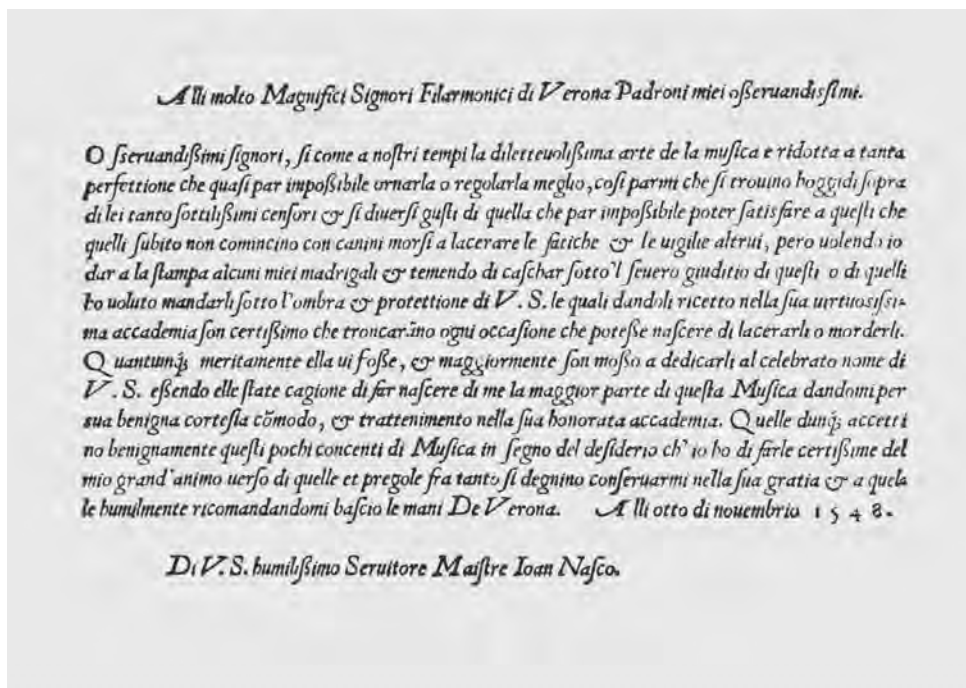 Alli molto Magnifici Signori Filarmonici di Verona Padroni miei oßeruandißimi.
O ſſeruandißimi ſignori, ſi come a noſtri tempi la diletteuolißima arte de la muſica e ridotta a tanta
perfettione che quaſi par impoßibile ornarla o regolarla meglio, coſi parmi che ſi trouino hoggidi ſopra
di lei tanto ſottilißimi cenſori & ſi diuerſi guſti di quella che par impoßibile poter ſatisfare a queſti che
quelli ſubito non comincino con canini morſi a lacerare le fatiche & le uigilie altrui, pero uolendo io
dar a la ſtampa alcuni miei madrigali & temendo di caſchar ſotto'l ſeuero giuditio di queſti o di quelli
ho uoluto mandarli ſotto l'ombra & protettione di V. S. le quali dandoli ricetto nella ſua uirtuosiſsi-
ma accademia ſon certißimo che troncarāno ogni occaſione che poteße naſcere di lacerarli o morderli.
Quantunq; meritamente ella ui foße, & maggiormente ſon moßo a dedicarli al celebrato nome di
V. S. eßendo elle ſtate cagione di far naſcere di me la maggior parte di queſta Muſica dandomi per
sua benigna corteſia cōmodo, & trattenimento nella ſua honorata accademia. Quelle dunq; accetti
no benignamente queſti pochi concenti di Muſica in ſegno del deſiderio ch'io ho di farle certißime del
mio grand'animo uerſo di quelle et pregole fra tanto ſi degnino conſeruarmi nella ſua gratia & a quela
le humilmente ricomandandomi baſcio le mani De Verona. Alli otto di nouembrio 1548.
Di V. S. humilißimo Seruitore Maiſtre Ioan Naſco.